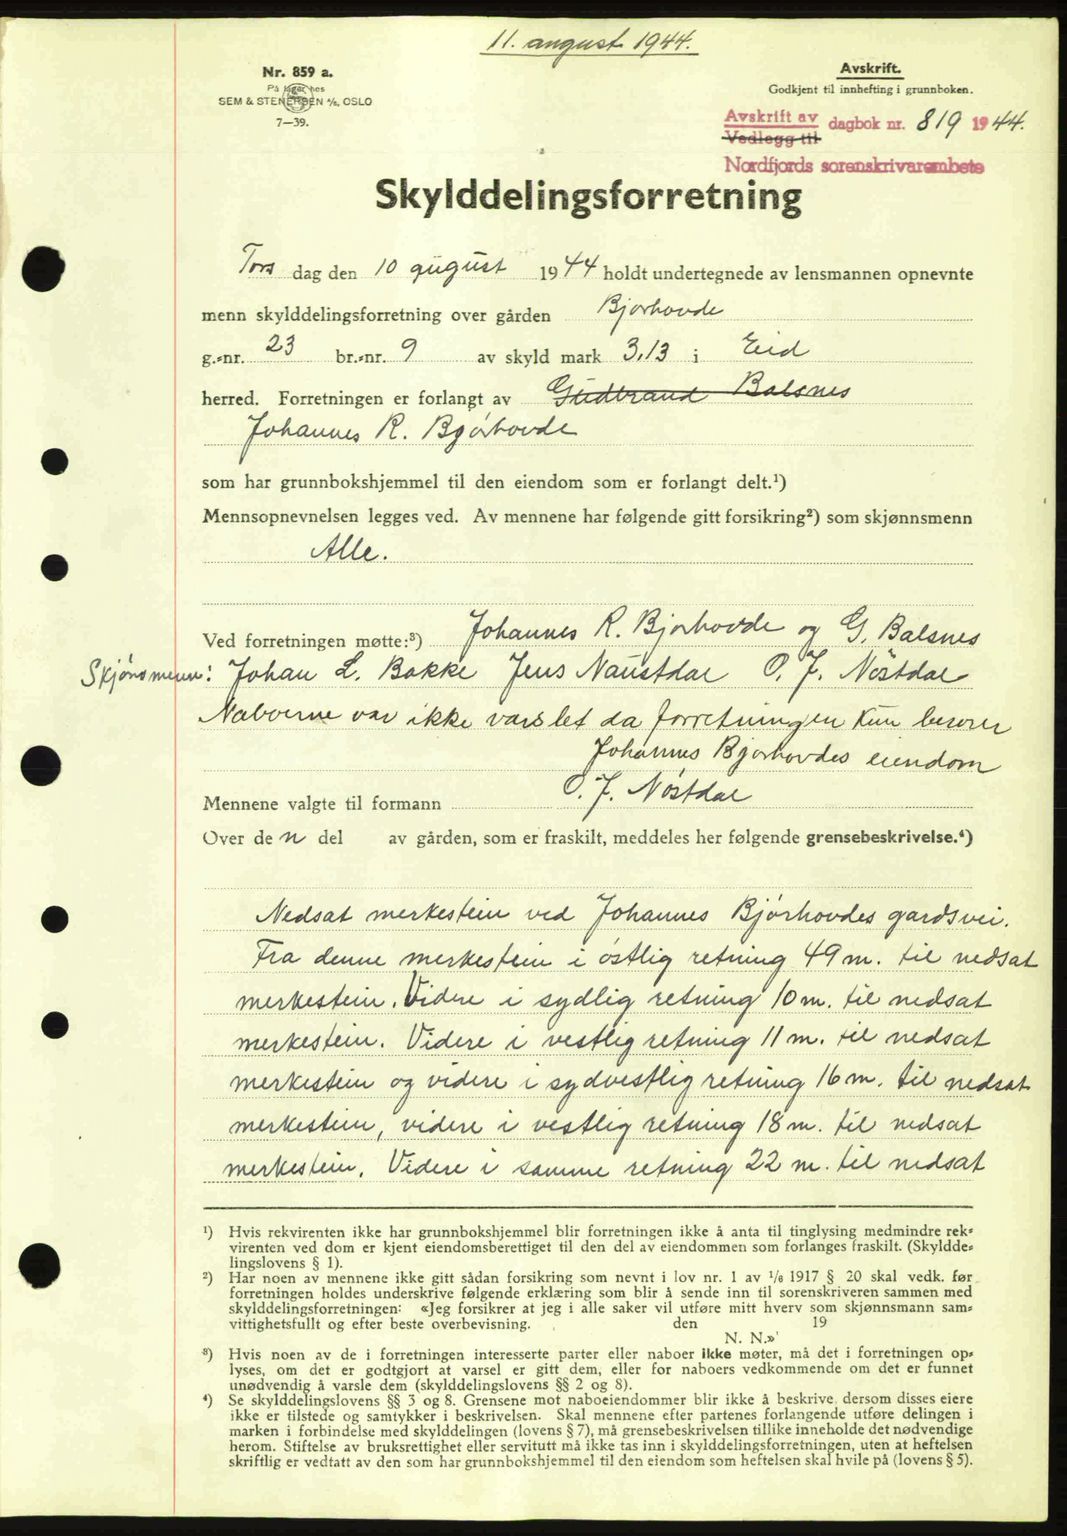 11. august 1944.
Nr. 859 a.
På lager hos
SEM & STENERSEN A/S. OSLO
7—39.
Avskrift.
Godkjent til innhefting i grunnboken.
Avskrift av
Vedlegg til
dagbok nr. 819 1944.
Nordfjords sorenskrivarembete
Skylddelingsforretning
Tors dag den 10 august 1944 holdt undertegnede av lensmannen opnevnte
menn skylddelingsforretning over gården Bjorhovde
g.-nr. 23 br.-nr. 9 av skyld mark 3,13 i Eid
herred. Forretningen er forlangt av Gudbrand Balsnes
Johannes R. Bjørhovde
som har grunnbokshjemmel til den eiendom som er forlangt delt.¹)
Mennsopnevnelsen legges ved. Av mennene har følgende gitt forsikring²) som skjønnsmenn
Alle.
Ved forretningen møtte:³) Johannes R. Bjorhovde og G. Balsnes
Skjønsmenn: Johan L. Bakke Jens Naustdal O. J. Nöstdal
Naboerne var ikke varslet da forretningen kun berorer
Johannes Bjorhovdes eiendom
Mennene valgte til formann O. J. Nøstdal
Over den del av gården, som er fraskilt, meddeles her følgende grensebeskrivelse.⁴)
Nedsat merkestein ved Johannes Bjórhovdes gardsvei.
Fra denne merkestein i óstlig retning 49 m. til nedsat
merkestein. Videre i sydlig retning 10 m. til nedsat
merkestein. Videre i vestlig retning 11 m. til nedsat
merkestein og videre i sydvestlig retning 16 m. til nedsat
merkestein, videre i vestlig retning 18 m. til nedsat
merkestein. Videre i samme retning 22 m. til nedsat
¹) Hvis rekvirenten ikke har grunnbokshjemmel blir forretningen ikke å anta til tinglysing medmindre rek-
virenten ved dom er kjent eiendomsberettiget til den del av eiendommen som forlanges fraskilt. (Skyldde-
lingslovens § 1).
²) Har noen av mennene ikke gitt sådan forsikring som nevnt i lov nr. 1 av 1/6 1917 § 20 skal vedk. før
forretningen holdes underskrive følgende erklæring som blir å sende inn til sorenskriveren sammen med
skylddelingsforretningen: «Jeg forsikrer at jeg i alle saker vil utføre mitt hverv som skjønnsmann sam-
vittighetsfullt og efter beste overbevisning. den 19
N. N.»
³) Hvis noen av de i forretningen interesserte parter eller naboer ikke møter, må det i forretningen op-
lyses, om det er godtgjort at varsel er gitt dem, eller for naboers vedkommende om det er funnet
unødvendig å varsle dem (skylddelingslovens §§ 2 og 8).
⁴) Se skylddelingslovens §§ 3 og 8. Grensene mot naboeiendommer blir ikke å beskrive, dersom disses eiere
ikke er tilstede og samtykker i beskrivelsen. Skal mennene efter partenes forlangende utføre delingen i
marken i forbindelse med skylddelingen (lovens § 7), må grensebeskrivelsen tillike inneholde det nødvendige
herom. Stiftelse av bruksrettighet eller servitutt må ikke tas inn i skylddelingsforretningen, uten at heftelsen
skriftlig er vedtatt av den som har grunnbokshjemmel til den eiendom som heftelsen skal hvile på (lovens § 5).